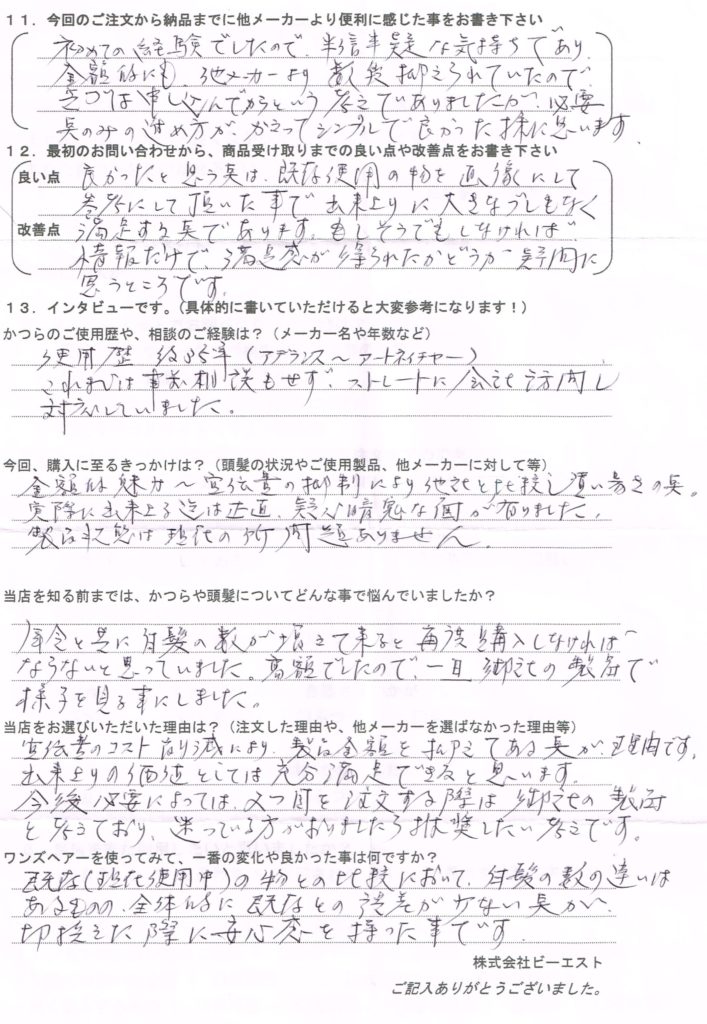 11．今回のご注文から納品までに他メーカーより便利に感じた事をお書き下さい
初めての経験でしたので、半信半疑な気持ちであり、
金額的にも、他メーカーより数段抑えられていたので
まづは申し込んでからという考えでありましたが、必要
具のみの進め方が、かえってシンプルで良かった様に思います。
12．最初のお問い合わせから、商品受け取りまでの良い点や改善点をお書き下さい
良い点 良かったと思う点は、既存使用の物を
参考にして頂いた事で出来上りに大きなブレもなく
改善点 満足する点であります。もしそうでもしなければ
情報だけで、満足感が得られたかどうか疑問に
思うところです。
13．インタビューです。（具体的に書いていただけると大変参考になります！）
かつらのご使用歴や、相談のご経験は？（メーカー名や年数など）
使用歴 約25年（アデランス～アートネイチャー）
これまでは事前相談もせず、ストレートに会社訪問し
対応していました。
今回、購入に至るきっかけは？（頭髪の状況やご使用製品、他メーカーに対して等）
金額的魅力～宣伝費の抑制により他社と比較し買い易さの点。
実際に出来上る迄は正直、疑心暗鬼な面が有りました。
製品状態は現在の所問題ありません。
当店を知る前までは、かつらや頭髪についてどんな事で悩んでいましたか？
年令と共に白髪の数が増えて来ると再度購入しなければ
ならないと思っていました。高額でしたので、一旦御社の製品で
様子を見る事にしました。
当店をお選びいただいた理由は？（注文した理由や、他メーカーを選ばなかった理由等）
宣伝費のコスト削減により、製品金額を抑えてある点が、理由です。
出来上りの価値としては充分満足できると思います。
今後必要によっては、2つ目を注文する際は御社の製品
と考えており、迷っている方がおりましたら推奨したい考えです。
ワンズヘアーを使ってみて、一番の変化や良かった事は何ですか？
既存（現在使用中）の物との比較において、白髪の数の違いは
あるものの、全体的に既存との誤差が少ない点が、
切換えた際に安心感を持った事です。
株式会社ビーエスト
ご記入ありがとうございました。